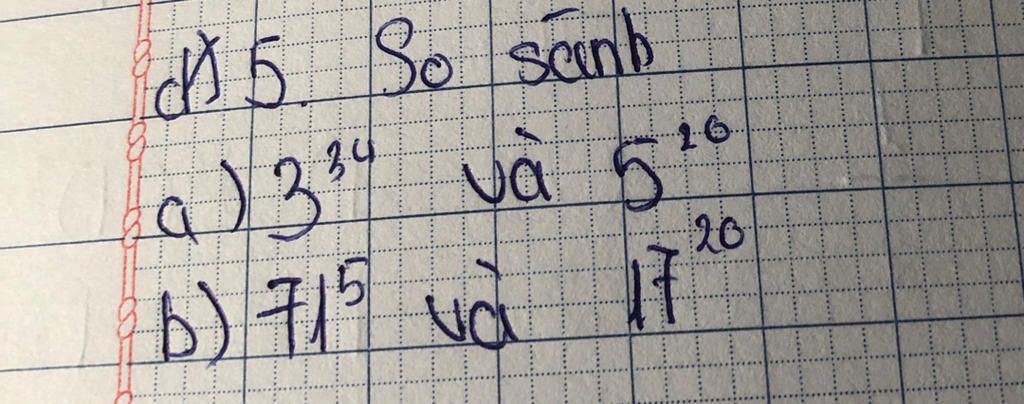 5. So sánh
a) 3³⁴ và 5²⁰
b) 71⁵ và 17²⁰